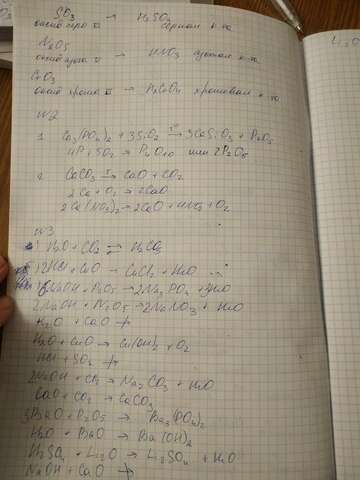 SO3 → H2SO4
оксид серы VI серная к-та
N2O5 → HNO3 азотная к-та
оксид азота V
CrO3
оксид хрома VI → H2CrO4 хромовая к-та
N2
1. Ca3(PO4)2 + 3SiO2 t°→ 3CaSiO3 + P2O5
4P + 5O2 → P4O10 или 2P2O5
2. CaCO3 t→ CaO + CO2
2Ca + O2 → 2CaO
2Ca(NO3)2 → 2CaO + 4NO2 + O2
N3
H2O + CO2 ⇄ H2CO3
2HCl + CuO → CuCl2 + H2O
6NaOH + P2O5 → 2Na3PO4 + 3H2O
2NaOH + N2O5 → 2NaNO3 + H2O
K2O + CaO ↛
H2O + CuO → Cu(OH)2 + O2
HCl + SO3 ↛
2NaOH + CO2 → Na2CO3 + H2O
CaO + CO2 → CaCO3
3BaO + P2O5 → Ba3(PO4)2
H2O + BaO → Ba(OH)2
H2SO4 + Li2O → Li2SO4 + H2O
NaOH + CaO ↛
Li2O